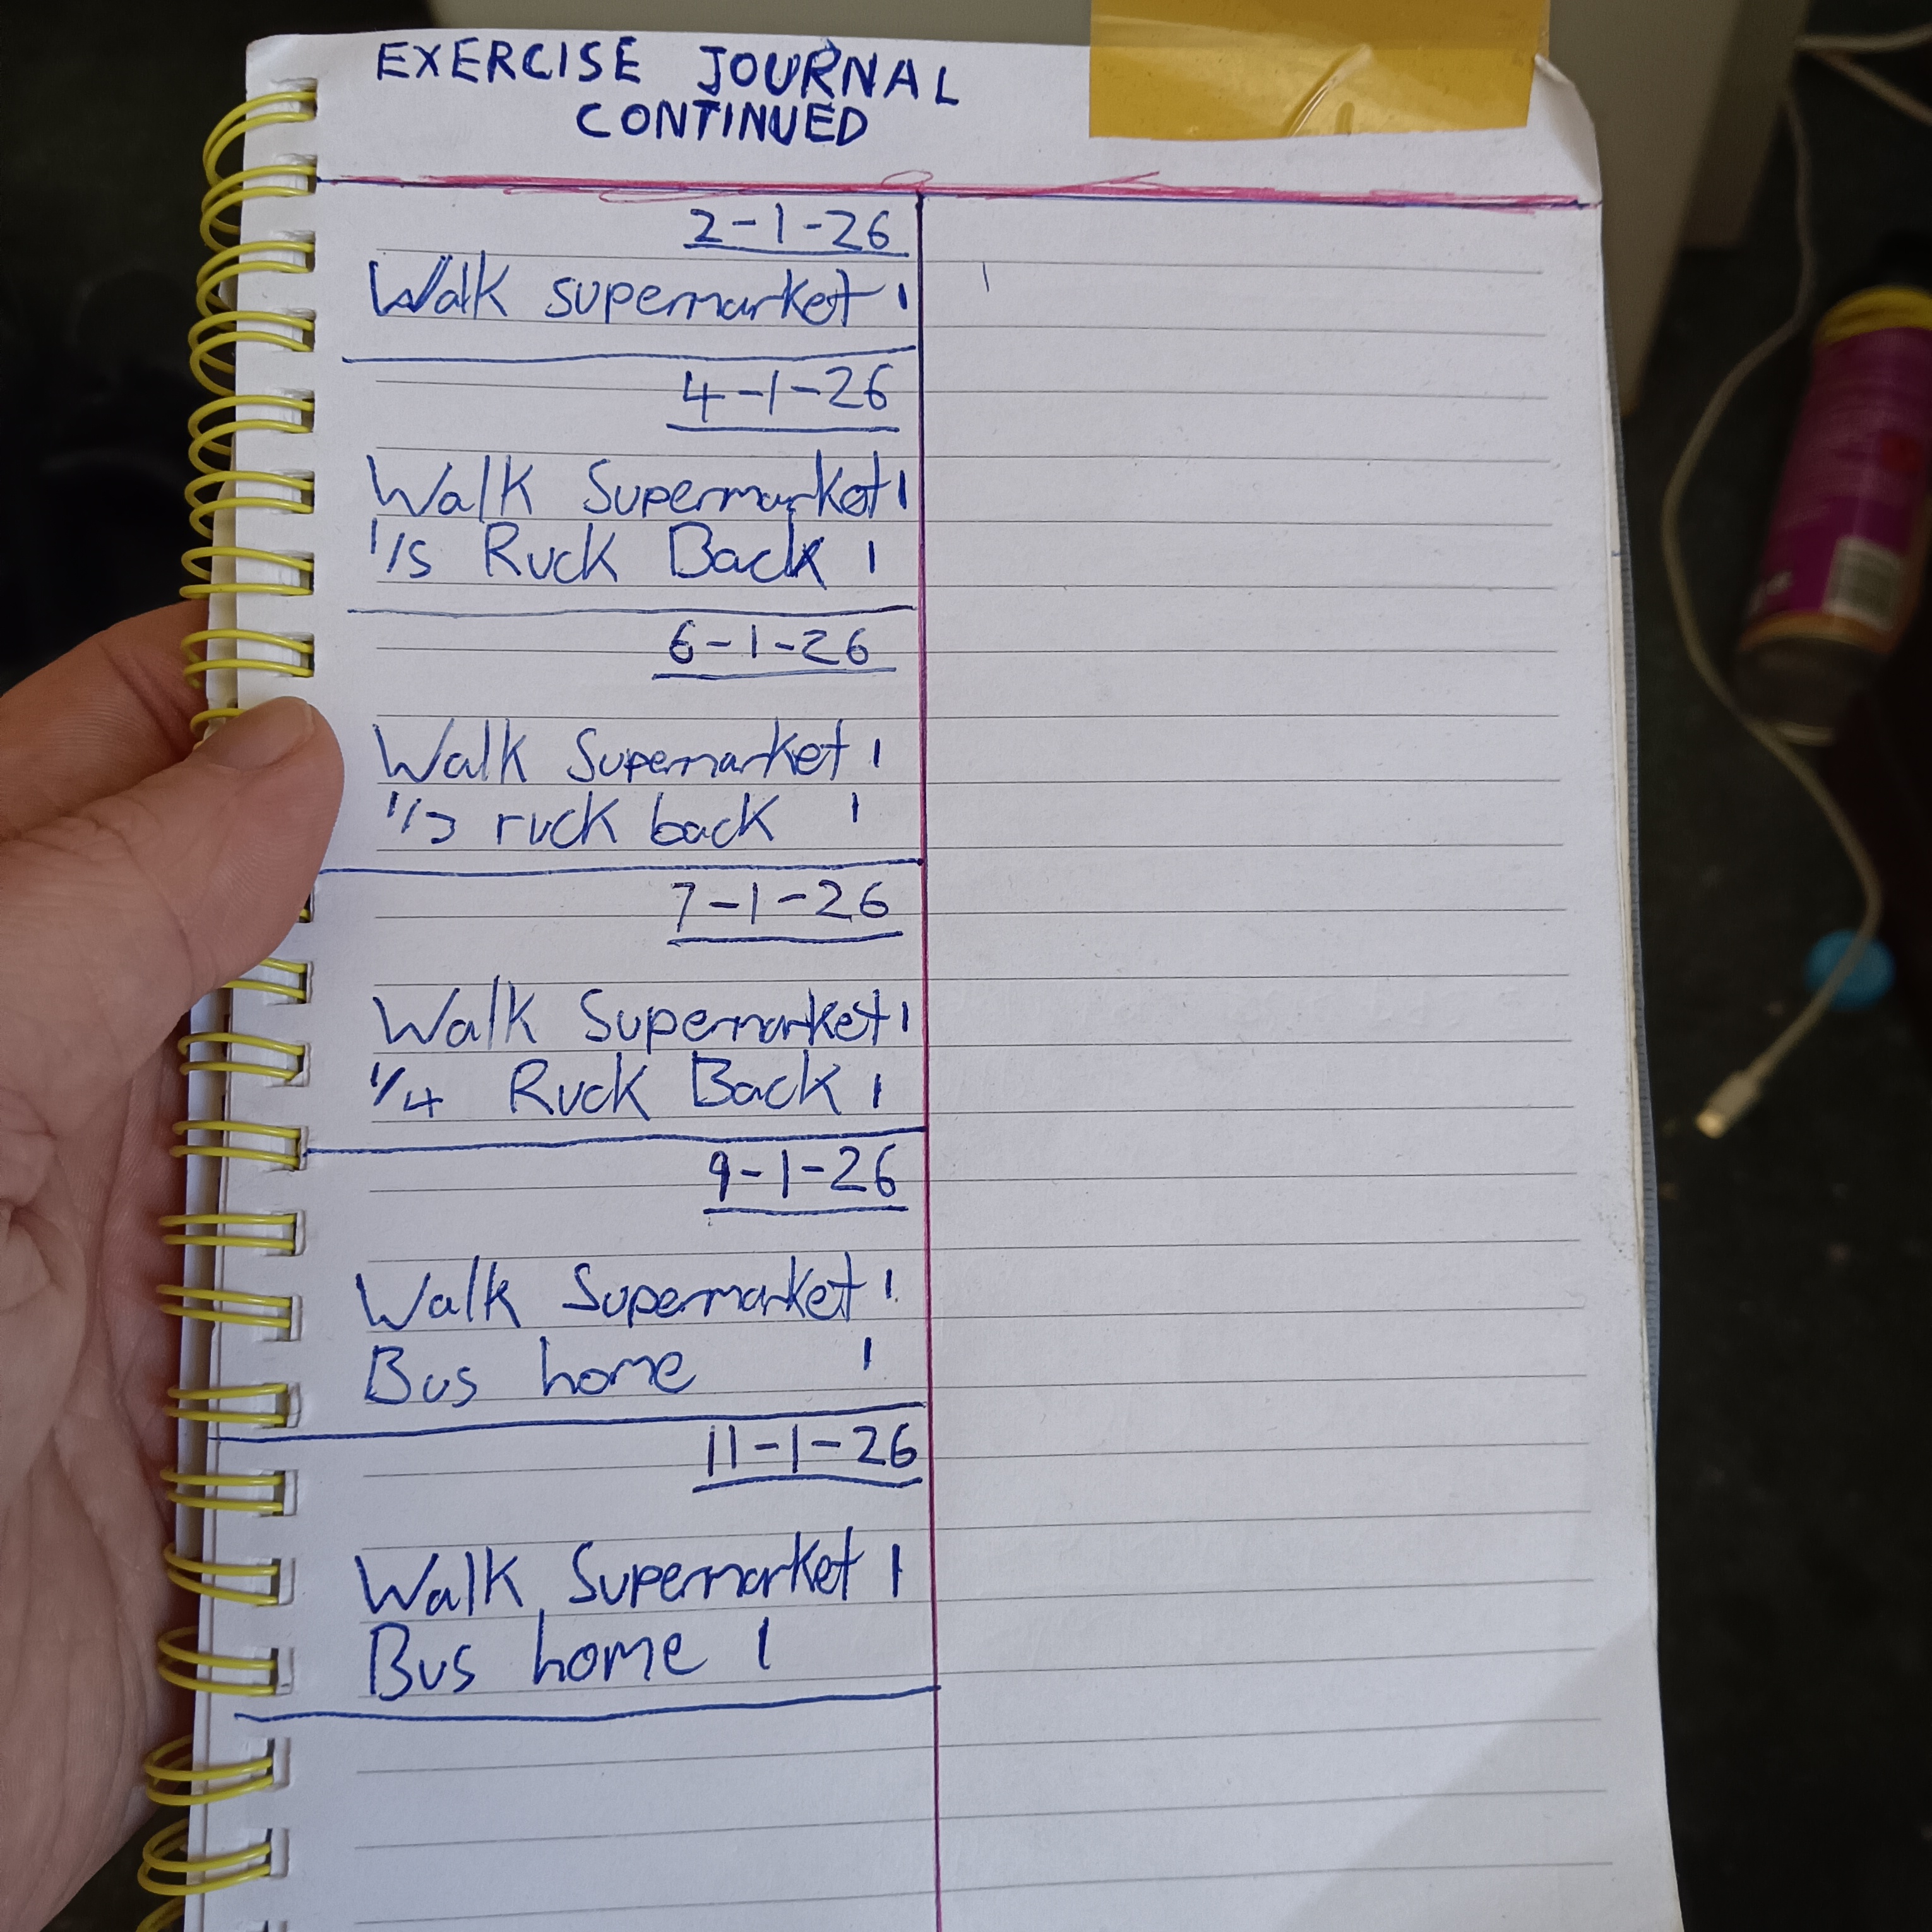 EXERCISE JOURNAL
CONTINUED
2-1-26
Walk supermarket 1
4-1-26
Walk Supermarket 1
1/5 Ruck Back 1
6-1-26
Walk Supermarket 1
ruck back 1
7-1-26
Walk Supermarket 1
1/4 Ruck Back 1
9-1-26
Walk Supermarket 1
Bus home 1
11-1-26
Walk Supermarket 1
Bus home 1